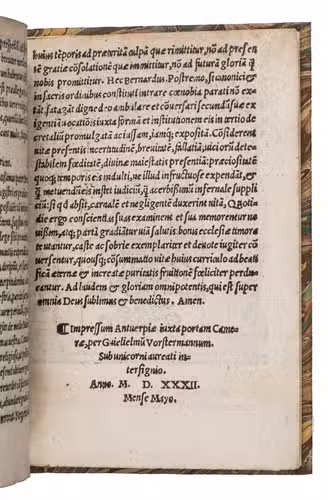 huius tẽporis ad præteritã culpã quæ rimittitur, nõ ad presen
tẽ gratiæ cõsolationẽ quæ immittitur, nõ ad futurã gloriã q̃
nobis promittitur. Hec Bernardus. Postremo, si canonici &
in sacris ordinibus constituti intrare cœnobia parati nõ exi
tãt, satagãt digne deo ambulare et cõuersari secundũ suæ exi
gentiã uocatiõis iuxta formã et institutionem eis in tertio de
cretaliũ promulgatã ac iussam, iamq; expositã. Cõsiderent
uitæ presentis incertitudinẽ, breuitatẽ, fallatiã, uiciorũ dete-
stabilem fœditatẽ, diuinæ maiestatis presentiã: præciositatẽ
quoq; temporis eis indulti, ne illud infructuose expendãt, &
q̃ metuendũ eis instet iudiciũ, q̃ acerbissimũ infernale suppli
ciũ: si qd absit, carnalẽ et negligentẽ duxerint uitã. Quotidi
die ergo conscientiã suã examinent et sua memorentur no
uissima, atq; parta gradiãtur uia salutis bonis ecclesiæ timora
te utantur, caste ac sobrie exemplariter et deuote iugiter cõ
uersentur, quousq; cõsummato uitæ huius curriculo ad beati
ficã æternæ & increatæ puritatis fruitionẽ fœliciter perdu
cantur. Ad laudem & gloriam omnipotentis, qui est super
omnia Deus sublimis & benedictus. Amen.
¶ Impressum Antuerpiæ iuxta portam Came
ræ, per Guielielmũ Vorstermannum.
Sub unicorni aureati in
tersignio.
Anno. M. D. XXXII.
Mense Mayo.